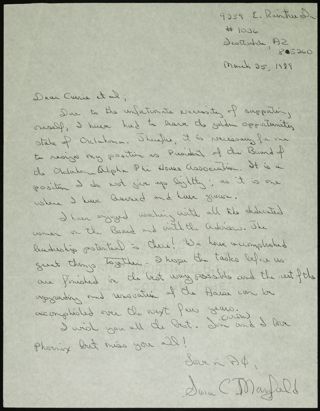 9259 E. Raintree Dr.
# 1036
Scottsdale, AZ
85260
March 25, 1989
Dear Carrie et al,
Due to the unfortunate necessity of supporting
myself, I have had to leave the golden opportunity
state of Oklahoma. Therefore, it is necessary for me
to resign my position as President of the Board of
the Oklahoma Alpha Phi House Association. It is a
position I do not give up lightly; as it is one
where I have learned and have grown.
I have enjoyed working with all the dedicated
women on the Board and with the Advisors. The
leadership potential is there! We have accomplished
great things together. I hope the tasks before us
are finished in the best way possible and the rest of the
upgrading and renovation of the House can be
accomplished over the next few years.
I wish you all the best. and I love
Phoenix but miss you all!
Love in AΦ,
Sara C Mayfield